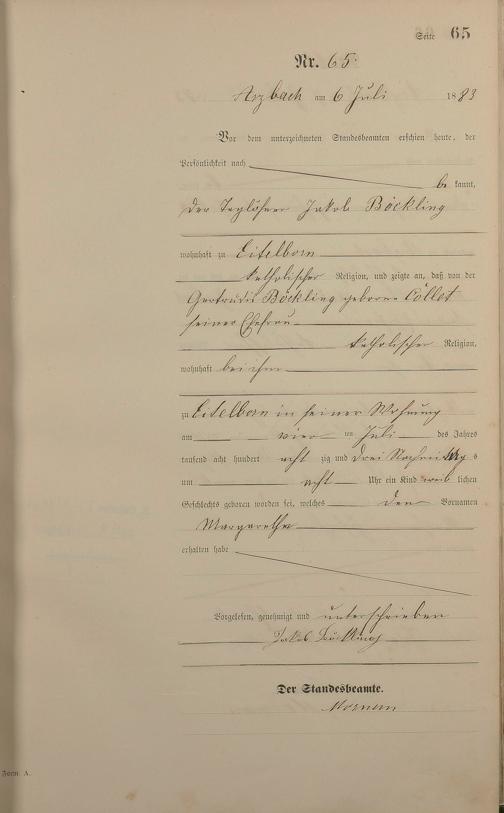 Seite 65
Nr. 65.
Arzbach am 6 Juli 1883
Vor dem unterzeichneten Standesbeamten erschien heute, der
Persönlichkeit nach
be kannt,
der Taglöhner Jakob Böckling
wohnhaft zu Eitelborn
katholischer Religion, und zeigte an, daß von der
Gertrudis Böckling geborne Collet
seiner Ehefrau
katholischer Religion,
wohnhaft bei ihm
zu Eitelborn in seiner Wohnung
am vier ten Juli des Jahres
tausend acht hundert acht zig und drei Nachmittags
um acht Uhr ein Kind weib lichen
Geschlechts geboren worden sei, welches den Vornamen
Margarethe
erhalten habe
Vorgelesen, genehmigt und unterschrieben
Jakob Böckling
Der Standesbeamte.
Form A.